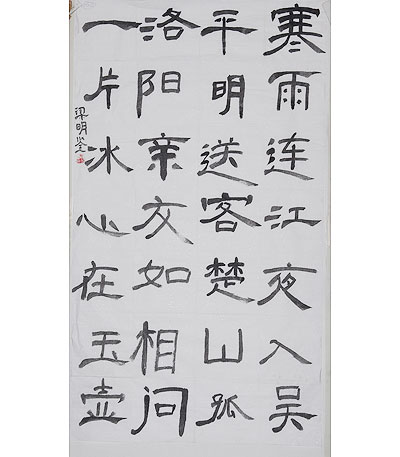 寒雨连江夜入吴
平明送客楚山孤
洛阳亲友如相问
一片冰心在玉壶
梁明